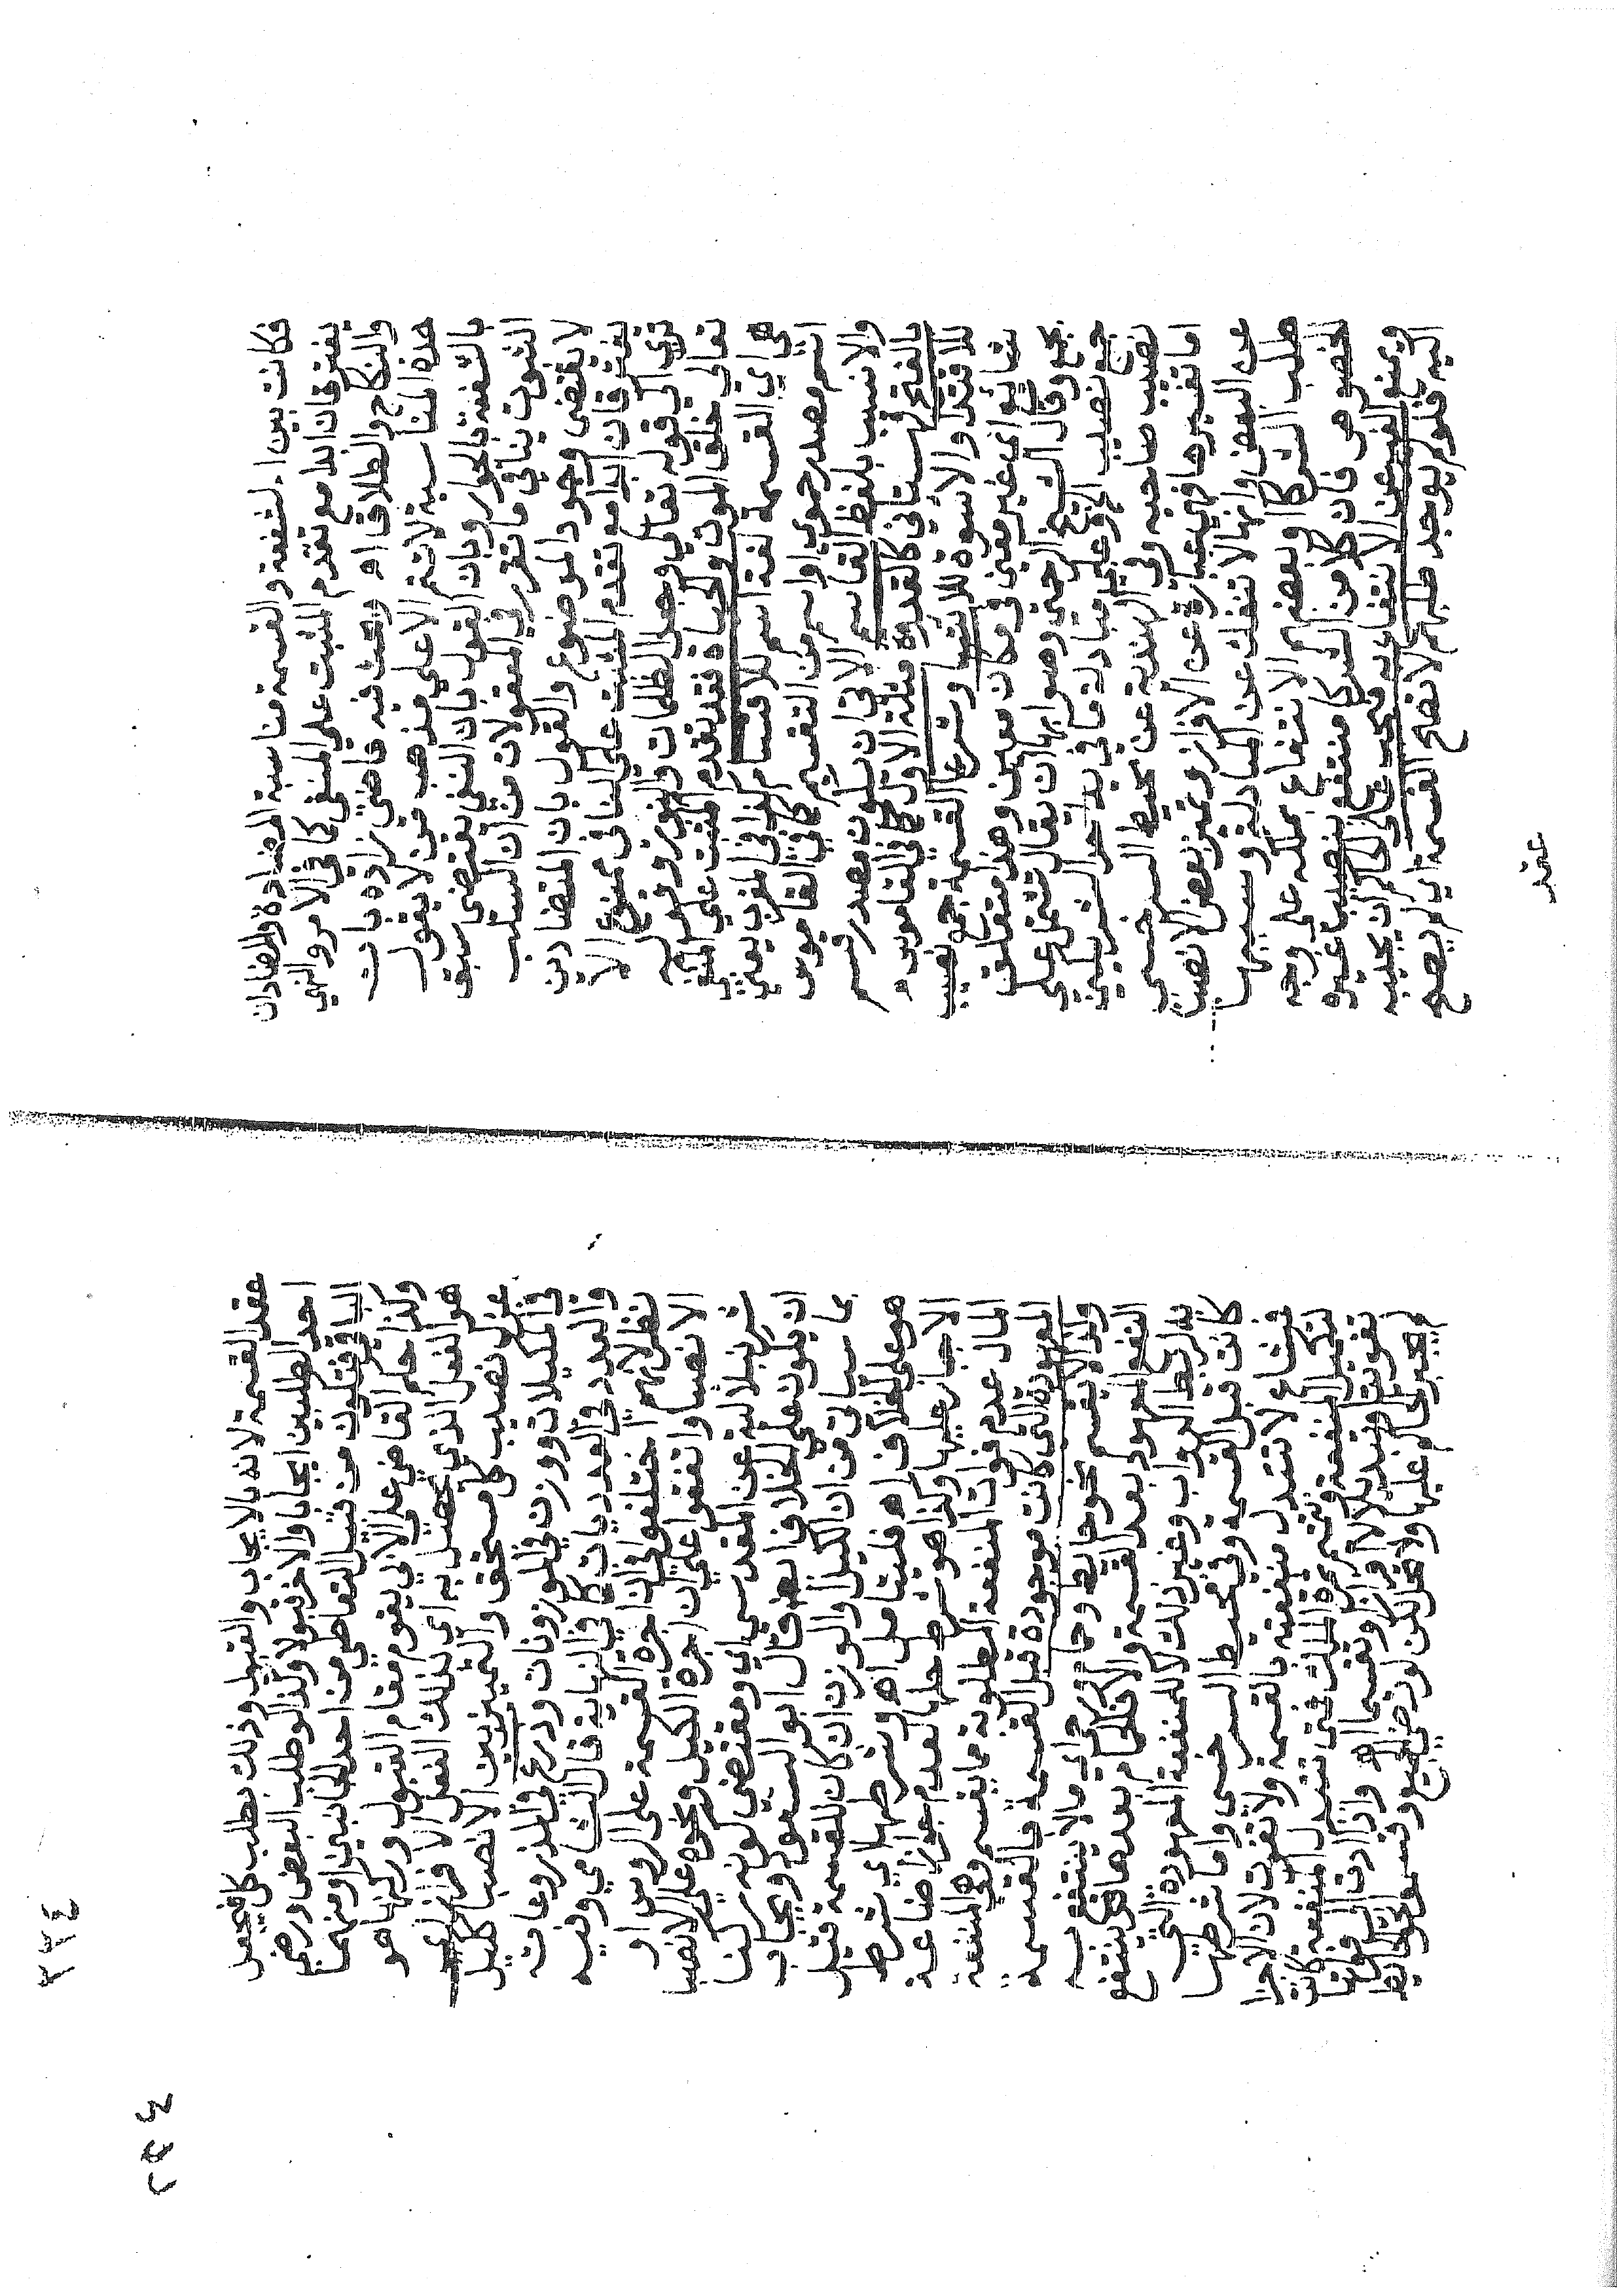 فكانت بين الشفعة والقسمة مناسبة المضادة والمضادان
يفترقان اندا مع تقدم المثبت على المنفى كما في الامر والنهي
والنكاح والطلاق اه وبحث فيه قاضي زاده بات
هذه المناسبة لا تتم الا على مذهب من لا يقول
بالشفعة بالجوار وبان القول بان النفي يقتضي سبق
الثبوت ينافي ما تقرر في المقولات من ان السلب
لا يقتضي وجود الموضوع والقول بان المتضادين
يفترقان ابدا مع تقدم المثبت على النافى ممنوع الا
ترى الى قوله تعالى وجعل الظلمات والنور وقوله
تعالى خلق الموت والحياة فقد تقدم المثبت على المنفي
هي اي القسمة لغة اسم للاقتسام كذا في المغرب يعني
اسم مصدر حموي او اسم من التقسيم كما في القاموس
والانسب بلفظ القاسم الاتي ان تكون مصدر قسم
بالفتح قهستاني كالقدوه مثلثة الاول كما في القاموس
للاقتدا والاسوة للائتسا وشرعا القسمة جمع نصيب
شايع اي غير معين في مكان معين وهذا متعلق
بجمع وقال الشيخ الرحمتي وصوابها ان يقال تشتمل على
جمع نصيب الخ وعلى مبادلة ما في يد اخر الشرنبلالي
نصيب صاحبه وفي الهندية عن محيط السرخسي
اما تفسيرها فهي عبارة عن الافراز وتميز بعض الانصبا
عن البعض وانها لا تنفك عن المبادلة وسببها
طلب الشركا او بعضهم الانتفاع بملكه على وجه
الخصوص فان كلا من الشركا منتفع بنصيب غيره
ويمنع الغير عن الانتفاع به فيجب على الحاكم ان يجيبه
اليه فلو لم يوجد طلبهم لا تصح القسمة اي لم يصح
عقد
عقد القسمة لانه بالايجاب والقبول وذلك بطلب كل فيجعل
احد الطلبين ايجابا والاخر قبولا ولذا لو طلب البعض ورضي
الباقي فتكون من قبيل التعاطي من احد الجانبين او منهما
وكذا حكم القاضي على الابي يقوم مقام القبول وركنها هو
هو الفعل الذي يحصل به اي بذلك الفعل الافراز اي
عزل نصيب كل مستحق والتمييز بين الانصبا ككيل
في المكيلات ووزن في الموزونات وذرع في المذروعات
والعدد في العدديات كما في النهاية قال الشامي وفيه
نظر لانهم اختلفوا في ان اجرة القسمة على الروس او
الانصبا واتفقوا على ان اجرة الكيل ونحوه على الانصبا
شرنبلالية عن المقدسي اي ومقتضى كونه ركنا
ان يكون على الخلاف ايضا قال ابو السعود ويجاب
بما سياتي من ان الكيل والوزن ان كان للقسمة قيل
هو على الخلاف اه فليتامل اه وشرطها اي شرط
الاجبار عليها وكذا هو شرط حلها لعدم جواز اضاعة
المال عدم فوات المنفعة المطلوبة مما يقسم وهي المنفعة
المعهودة التي كانت موجودة قبل القسمة فالقسمة
ولذا لا يقسم نحو حايط وحمام ورحى اي ما لا ينتفع به
النفع المعهود بعد القسمة والا فالحمام بعدها قد ينتفع
به لربط الدواب وغير ذلك لا للمنفعة المعهودة التي
كانت قبل القسمة وفي محيط السرخسي واما شرطها
فمشاع لا تتبدل منفعته بالقسمة ولا تفوت لان الاجزا
لتكميل المنفعة وثمرة الملك فمتى تتبدل المنفعة كان
تفويتا وتبديلا لا افرازا وتقسيما اه واذا ادت الى فواتها
لم يجبر الحاكم عليها ولا تحل لكن لو رضي الجميع وقسموا نحو الحايط
٣٢٤
٢٩٤